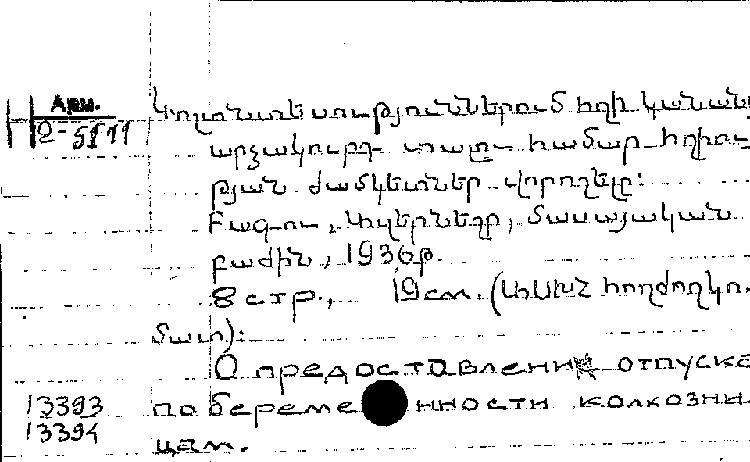 Арм.
2-5111
Կոլտնտեսություններում հղի կանանց
արձակուրդ տալու համար հղիու-
թյան ժամկետներ որոշելը:
Բաքու, Ազերնեշր, մասսայական
բաժին, 1936թ.
8 стр., 19 см. (ԱԽՍՀ հողժողկո-
մատ):
О предоставлении отпуске
13393 по беременности колхозни
13394 цам.